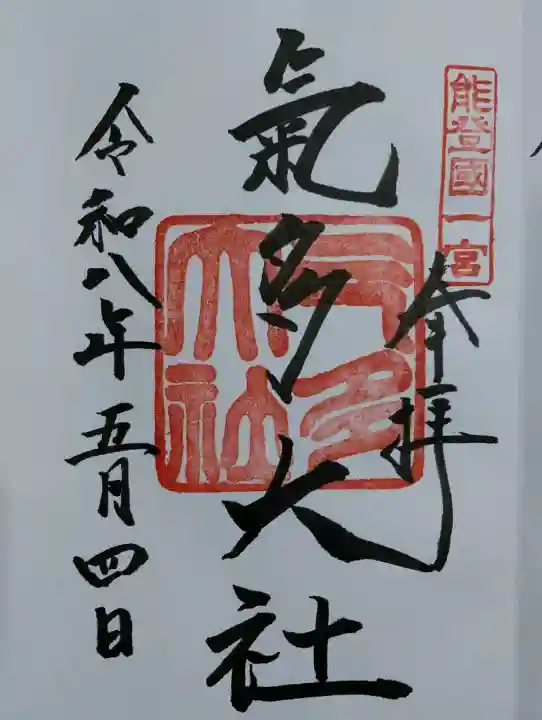 能登國一宮
奉拝
氣多大社
气多大社
令和八年五月四日